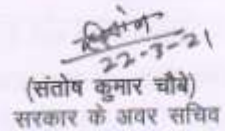 22-3-21
(संतोष कुमार चौबे)
सरकार के अवर सचिव